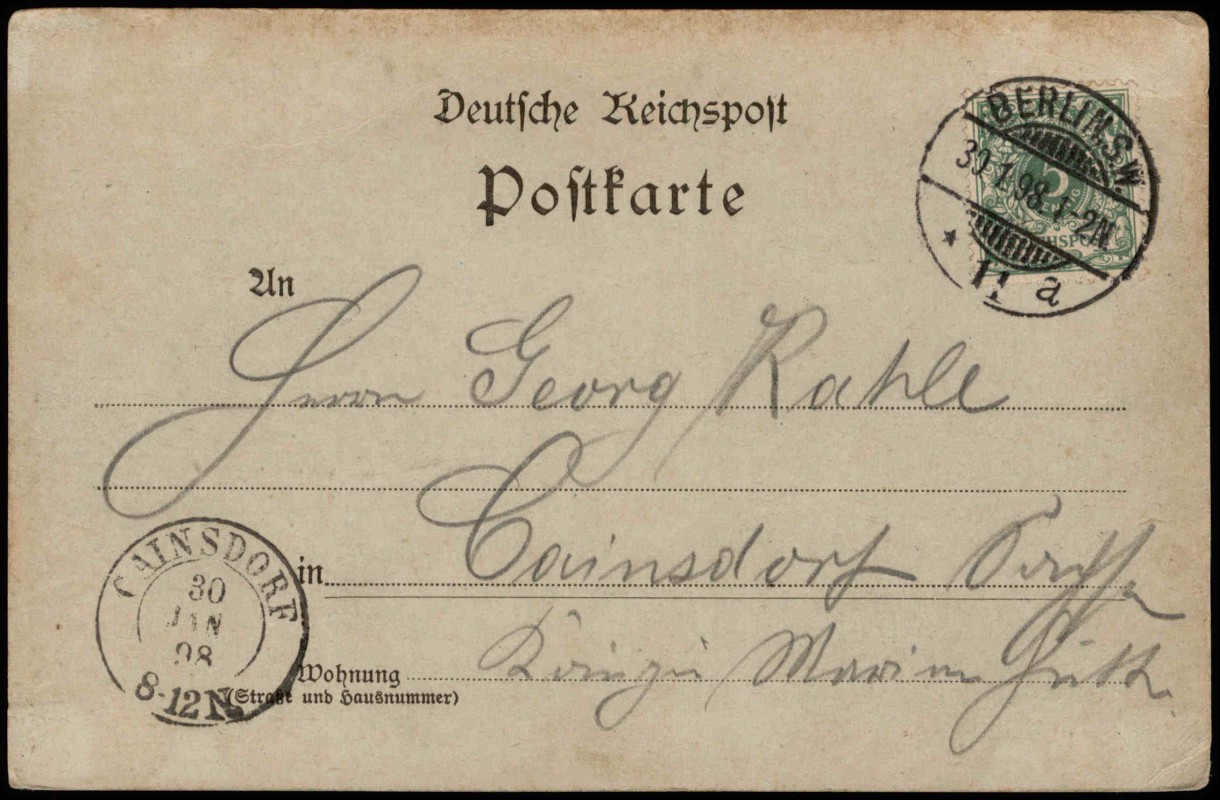 Deutsche Reichspost
Postkarte
BERLIN.S.W.
30.1.98.1-2N
* 11 a
5
An
Herrn Georg Rahle
Cainsdorf
in
Königin Marien Hütte
CAINSDORF
30
JAN
98
8-12N.
Wohnung
(Straße und Hausnummer)